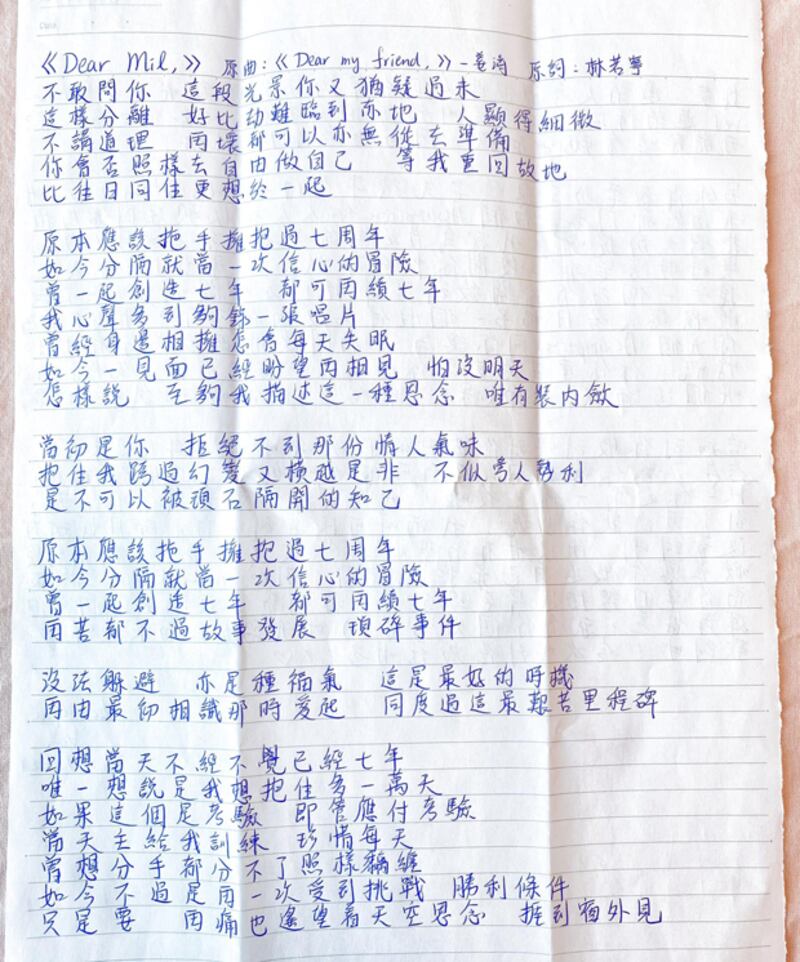 《Dear Mil,》 原曲:《Dear my friend,》-姜濤 原詞:林若寧
不敢問你 這段光景你又猶疑過未
這樣分離 好比劫難臨到亦地 人顯得細微
不講道理 再壞都可以亦無從去準備
你會否照樣去自由做自己 等我重回故地
比往日同住更想終一起
原本應該拖手擁抱過七周年
如今分隔就當一次信心的冒險
曾一起創造七年 都可再續七年
我心聲多到夠錄一張唱片
曾經身邊相擁怎會每天失眠
如今一見面已經盼望再相見 怕沒明天
怎樣說 至夠我描述這一種思念 唯有裝內斂
當初是你 拒絕不到那份情人氣味
抱住我跨過幻變又橫越是非 不似旁人勢利
是不可以被頑石隔開的知己
原本應該拖手擁抱過七周年
如今分隔就當一次信心的冒險
曾一起創造七年 都可再續七年
再苦都不過故事發展 瑣碎事件
沒法躲避 亦是種福氣 這是最好的時機
再由最初相識那時愛起 同度過這最艱苦里程碑
回想當天不經不覺已經七年
唯一想說是我想抱住多一萬天
如果這個是考驗 即管應付考驗
當天主給我訓練 珍惜每天
曾想分手都分不了照樣痴纏
如今不過是再一次受到挑戰 勝利條件
只是要 再痛也遙望着天空思念 捱到窗外見